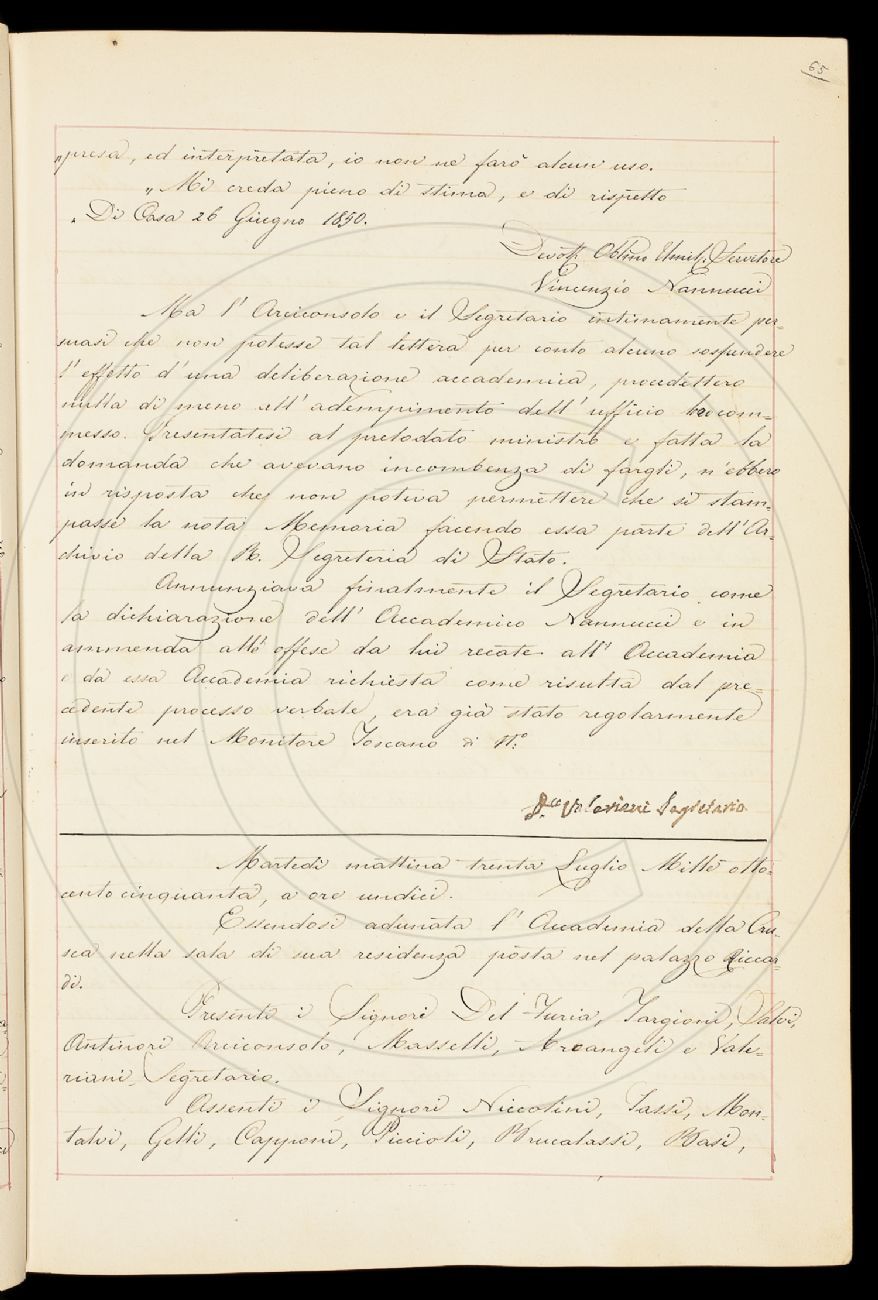 65
„presa, ed interpretata, io non ne farò alcun uso.
„Mi creda pieno di stima, e di rispetto
„Di Casa 26 Giugno 1850.
Devott. Obbmo Umil. Servitore
Vincenzio Nannucci
Ma l' Arciconsolo e il Segretario intimamente per-
suasi che non potesse tal lettera per conto alcuno sospendere
l' effetto d' una deliberazione accademica, procedettero
nulla di meno all' adempimento dell' ufficio lor com-
messo. Presentatisi al prelodato ministro e fatta la
domanda che avevano incombenza di fargli, n' ebbero
in risposta che non poteva permettere che si stam-
passe la nota Memoria facendo essa parte dell' Ar-
chivio della R. Segreteria di Stato.
Annunziava finalmente il Segretario come
la dichiarazione dell' Accademico Nannucci e in
ammenda alle offese da lui recate all' Accademia
e da essa Accademia richiesta come risulta dal pre-
cedente processo verbale, era già stato regolarmente
inserito nel Monitore Toscano di N.o
D.co Valeriani Segretario
Martedì mattina trenta Luglio Mille otto-
cento cinquanta, a ore undici.
Essendosi adunata l' Accademia della Cru-
sca nella sala di sua residenza posta nel palazzo Riccar-
di.
Presenti i Signori Del-Furia, Targioni, Salvi,
Antinori Arciconsolo, Masselli, Arcangeli e Vale-
riani, Segretario.
Assenti i Signori Niccolini, Tassi, Mon-
talvi, Gelli, Capponi, Piccioli, Brucalassi, Basi,